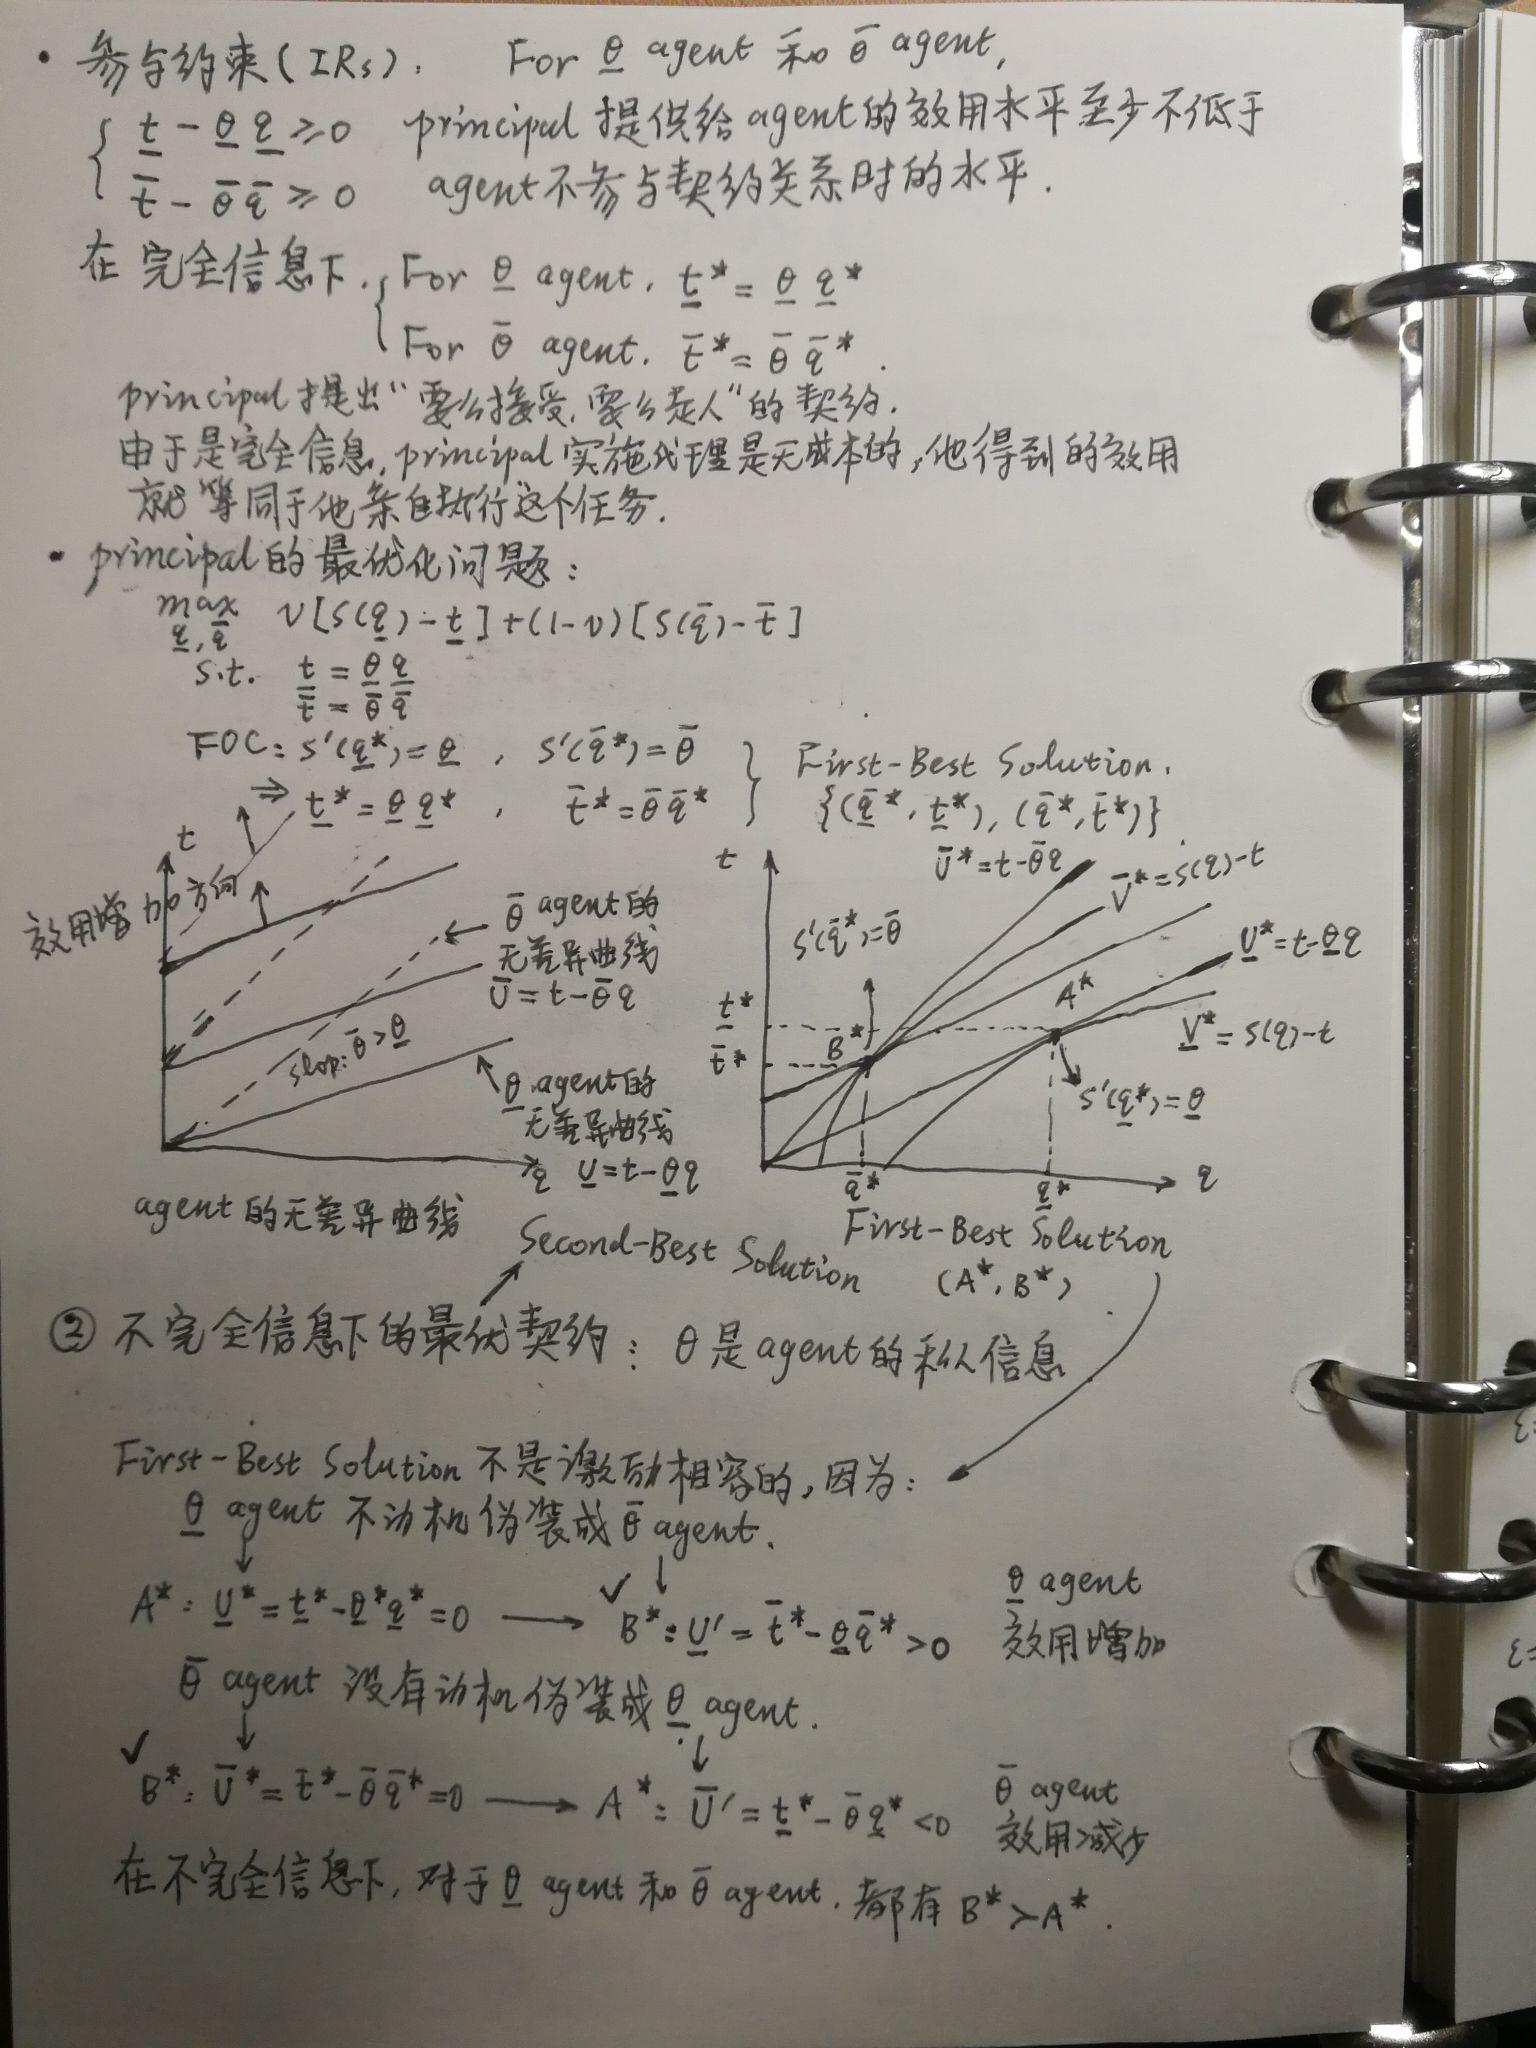 • 参与约束(IRs): For θ̲ agent 和 θ̄ agent,
t̲ - θ̲ q̲ ≥ 0 principal 提供给 agent 的效用水平至少不低于
t̄ - θ̄ q̄ ≥ 0 agent 不参与契约关系时的水平.
在完全信息下. For θ̲ agent. t̲* = θ̲ q̲*
For θ̄ agent. t̄* = θ̄ q̄*.
principal 提出“要么接受, 要么走人”的契约.
由于是完全信息, principal 实施代理是无成本的, 他得到的效用
就等同于他亲自执行这个任务.
• principal 的最优化问题:
max ν[S(q̲) - t̲] + (1-ν)[S(q̄) - t̄]
q̲, q̄
s.t. t̲ = θ̲ q̲
t̄ = θ̄ q̄
FOC: S'(q̲*) = θ̲ , S'(q̄*) = θ̄ } First-Best Solution.
⇒ t̲* = θ̲ q̲* , t̄* = θ̄ q̄* {(q̲*, t̲*), (q̄*, t̄*)}
t
效用增加方向
θ̄ agent 的
无差异曲线
Ū = t - θ̄ q
slop: θ̄ > θ̲
θ̲ agent 的
无差异曲线
q U̲ = t - θ̲ q
agent 的无差异曲线
t Ū* = t - θ̄ q V̄* = S(q) - t
S'(q̄*) = θ̄
U̲* = t - θ̲ q
A*
t̲*
B*
V̲* = S(q) - t
t̄*
S'(q̲*) = θ̲
q̄* q̲* q
First-Best Solution
(A*, B*)
Second-Best Solution
② 不完全信息下的最优契约: θ 是 agent 的私人信息
First-Best Solution 不是激励相容的, 因为:
θ̲ agent 不动机伪装成 θ̄ agent.
A*: U̲* = t̲* - θ̲* q̲* = 0 → ✓ B*: U̲' = t̄* - θ̲ q̄* > 0 θ̲ agent
效用增加
θ̄ agent 没有动机伪装成 θ̲ agent.
✓ B*: Ū* = t̄* - θ̄ q̄* = 0 → A*: Ū' = t̲* - θ̄ q̲* < 0 θ̄ agent
效用减少
在不完全信息下, 对于 θ̲ agent 和 θ̄ agent. 都有 B* ≻ A*.